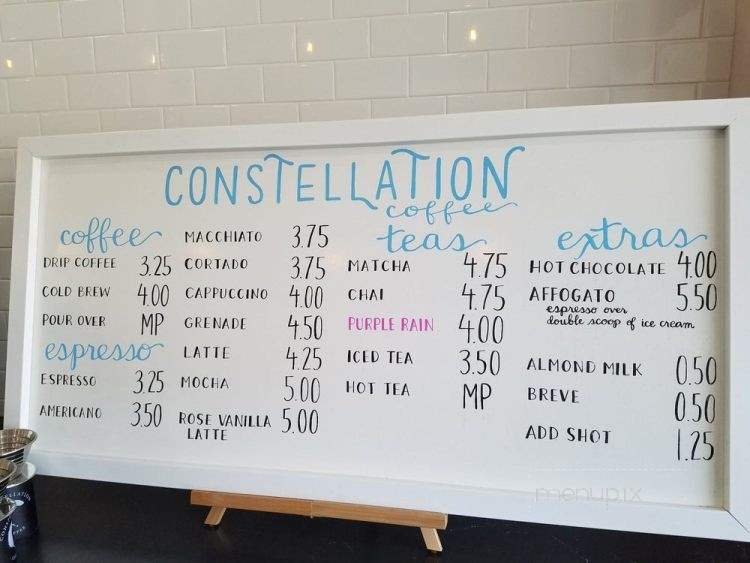 CONSTELLATION
coffee
coffee
DRIP COFFEE 3.25
COLD BREW 4.00
POUR OVER MP
espresso
ESPRESSO 3.25
AMERICANO 3.50
MACCHIATO 3.75
CORTADO 3.75
CAPPUCCINO 4.00
GRENADE 4.50
LATTE 4.25
MOCHA 5.00
ROSE VANILLA 5.00
LATTE
teas
MATCHA 4.75
CHAI 4.75
PURPLE RAIN 4.00
ICED TEA 3.50
HOT TEA MP
extras
HOT CHOCOLATE 4.00
AFFOGATO 5.50
espresso over
double scoop of ice cream
ALMOND MILK 0.50
BREVE 0.50
ADD SHOT 1.25
menupix
CONSTELLATION